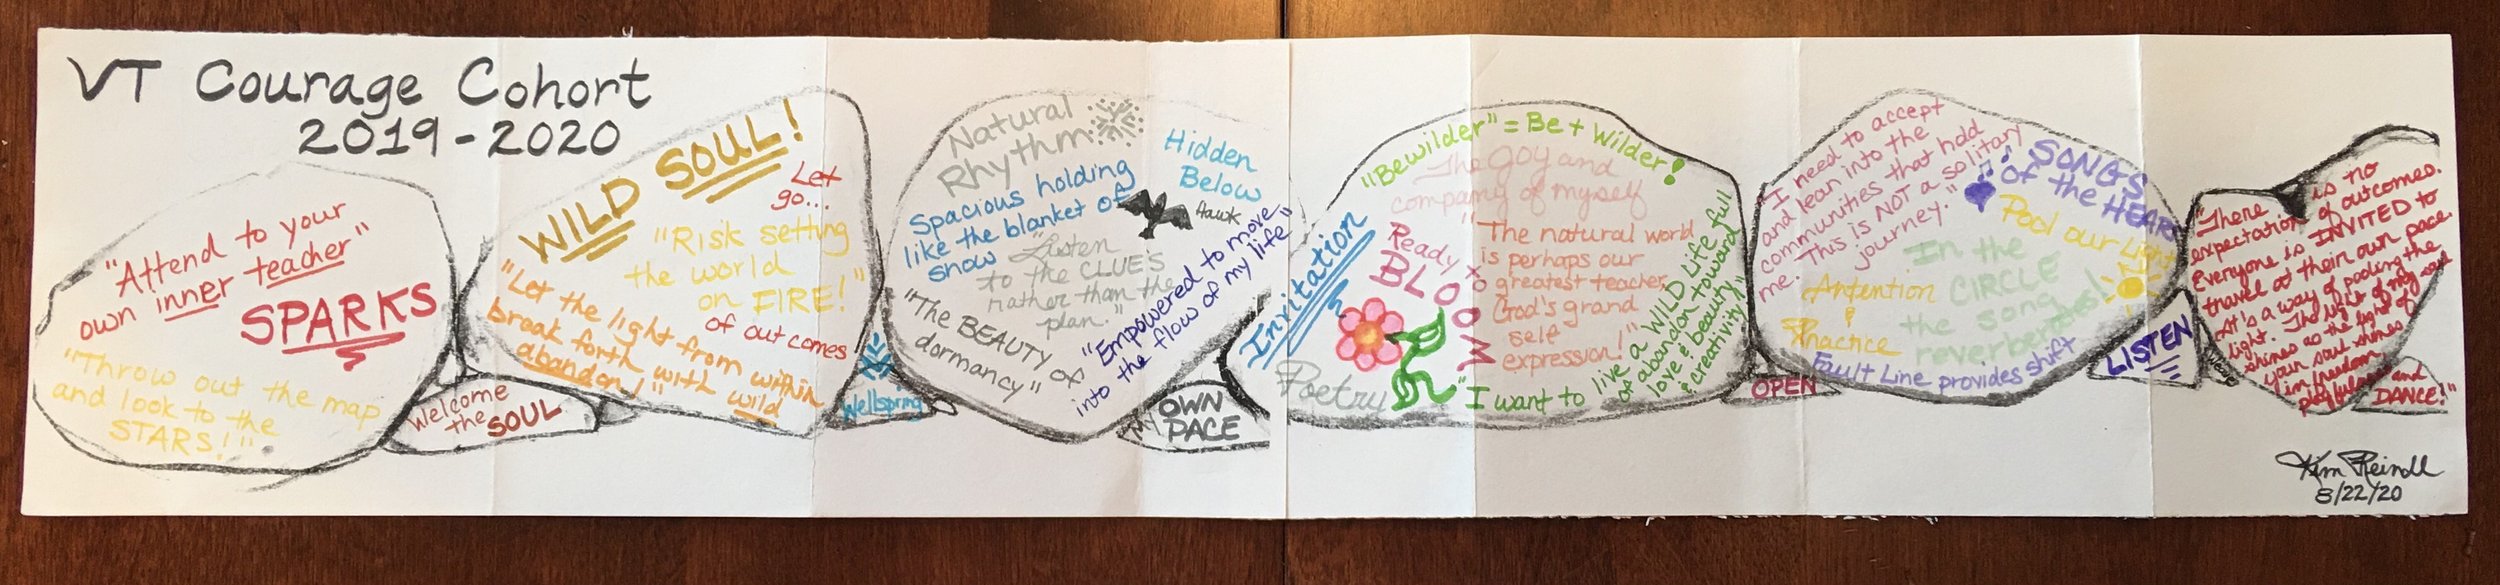 VT Courage Cohort
2019-2020
"Attend to your
own inner teacher"
SPARKS
"Throw out the map
and look to the
STARS!"
Welcome
the SOUL
WILD SOUL!
Let
go...
of outcomes
"Risk setting
the world
on FIRE!"
"Let the light from within
break forth with wild
abandon!"
Wellspring
Natural
Rhythm
Hidden
Below
Hawk
Spacious holding
like the blanket of
snow
"Listen
to the CLUE'S
rather than the
plan."
"The BEAUTY of
dormancy"
"Empowered to move
into the flow of my life"
My OWN
PACE
"Bewilder" = Be + Wilder!
The Joy and
company of myself
Invitation
Ready to
BLOOM
"The natural world
is perhaps our
greatest teacher,
God's grand
self
expression!"
Poetry
"I want to live a WILD Life full
of abandon toward
love & beauty
& creativity"
OPEN
"I need to accept
and lean into the
communities that hold
me. This is NOT a solitary
journey."
SONGS
of the HEART
Pool our Light
In the
CIRCLE
the song
reverberates!
Attention
&
Practice
Fault Line provides shift
LISTEN
"There is no
expectation of outcomes.
Everyone is INVITED to
travel at their own pace.
It's a way of pooling the
light. The light of my soul
shines as the light of
your soul shines
in freedom
playfulness and
DANCE!"
Kim Reindl
8/22/20